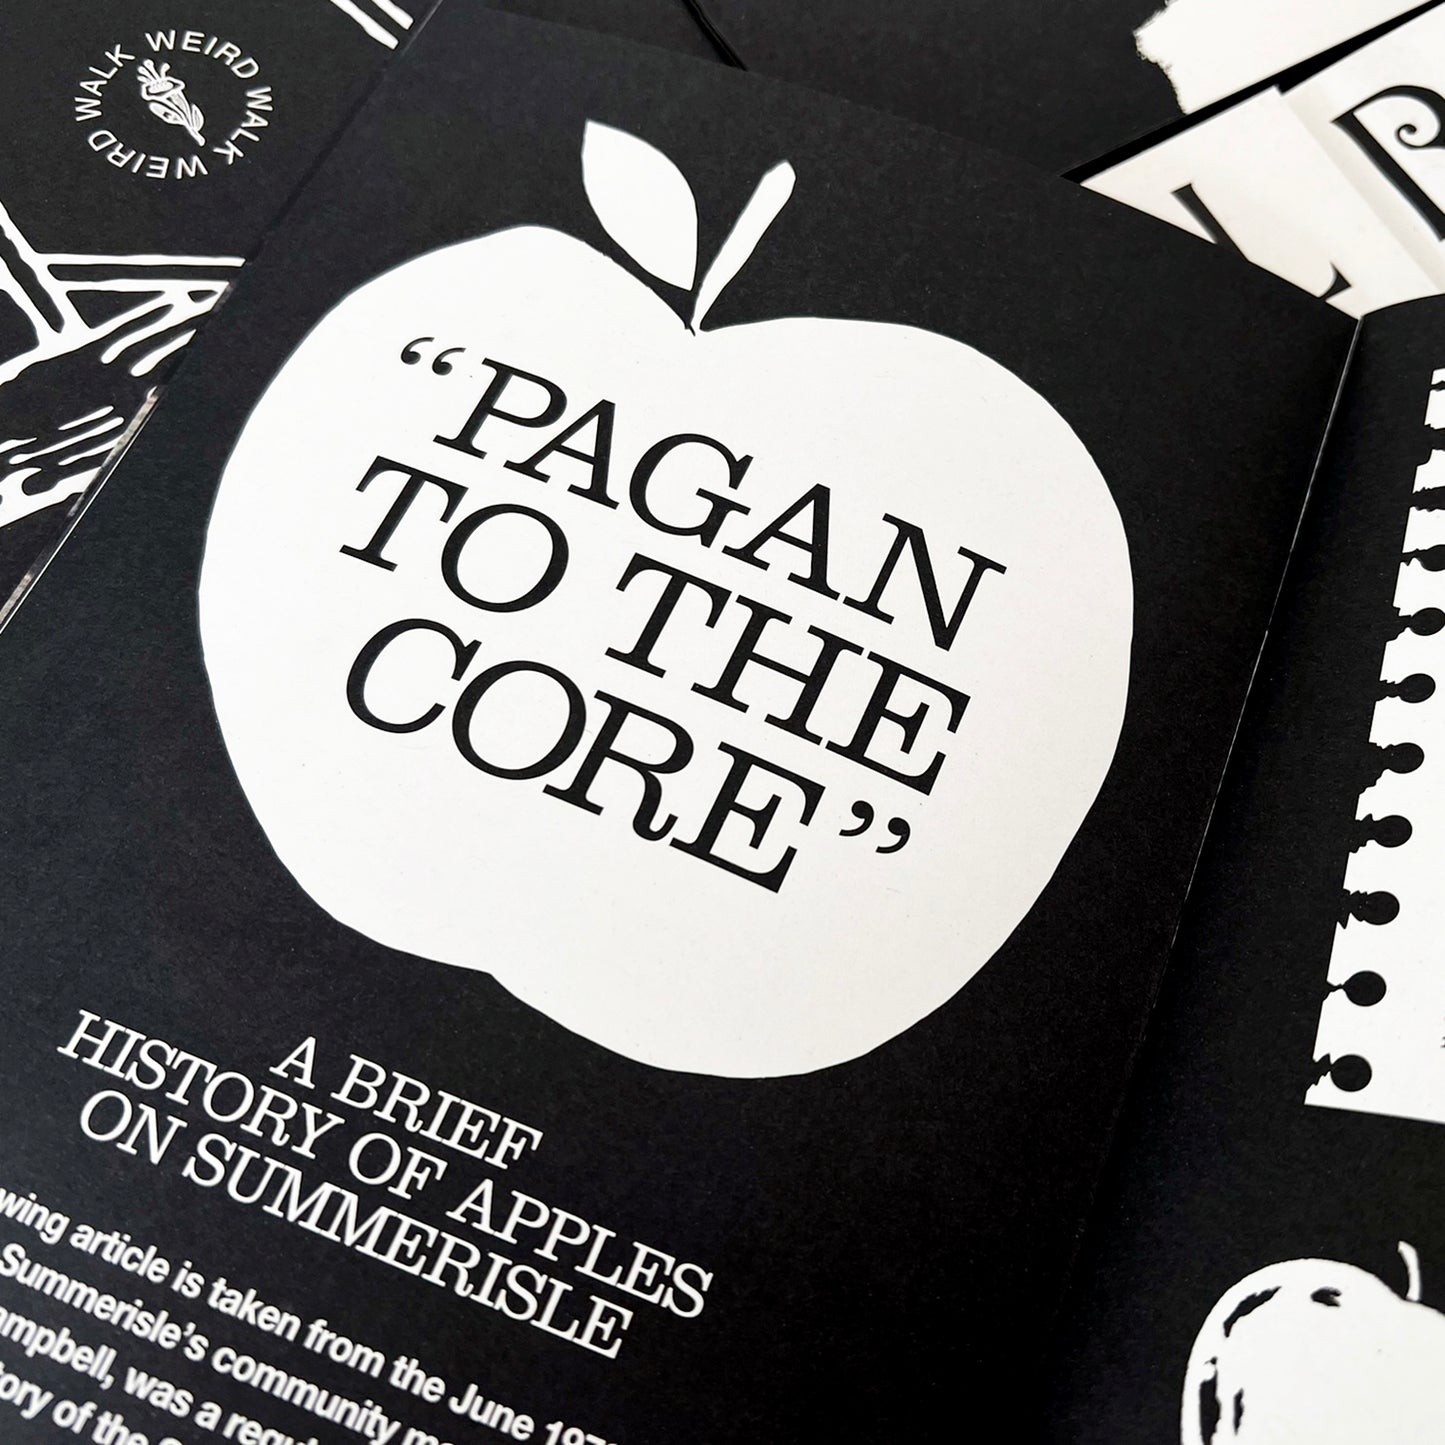 WEIRD WALK WEIRD WALK
“PAGAN
TO THE
CORE”
A BRIEF
HISTORY OF APPLES
ON SUMMERISLE
article is taken from the June
Summerisle’s community
was a
of the